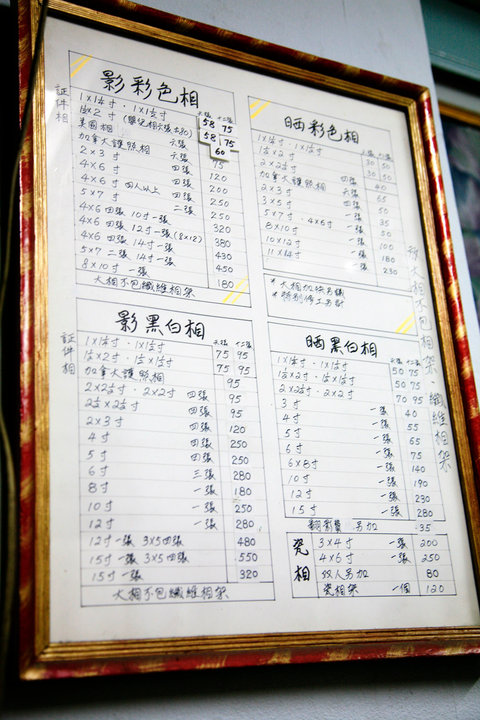 影彩色相
証件相
六張 十二張
1×1¼寸．1×1½寸 58 75
1½×2寸 (嬰兒相六張加30) 58 75
美國相 六張 60
加拿大護照相 六張 75
2×3寸 四張 120
4×6寸 四張 200
4×6寸 四人以上 四張 250
5×7寸 二張 250
4×6 四張 10寸一張 320
4×6 四張 12寸一張 (8×12) 380
4×6 四張 14寸一張 430
5×7 二張 14寸一張 450
8×10寸 一張 180
大相不包纖維相架
晒彩色相
1×1¼寸．1×1½寸 30 50
1½×2寸 30 50
2×2½寸 四張 40
加拿大護照相 六張 65
2×3寸 四張 35
3×5寸 一張 50
5×7寸．4×6寸 一張 50
8×10寸 一張 100
10×12寸 一張 180
11×14寸 一張 230
*大相加快另議
*特別修工另計
影黑白相
証件相
六張 十二張
1×1¼寸．1×1½寸 75 95
1½×2寸．1½×1½寸 75 95
加拿大護照相 95
2×2½寸．2×2寸 四張 95
2½×2½寸 四張 95
2×3寸 四張 120
4寸 四張 250
5寸 四張 250
6寸 三張 280
8寸 一張 180
10寸 一張 250
12寸 一張 280
12寸一張 3×5四張 480
15寸一張 3×5四張 550
15寸一張 320
大相不包纖維相架
晒黑白相
六張 十二張
1×1¼寸．1×1½寸 50 75
1½×2寸．1½×1½寸 50 75
2×2½寸．2×2寸 70 95
3寸 一張 40
4寸 一張 55
5寸 一張 65
6寸 一張 75
6×8寸 一張 140
10寸 一張 190
12寸 一張 230
15寸 一張 280
翻影費 另加 35
瓷相
3×4寸 一張 200
4×6寸 一張 250
双人另加 80
瓷相架 一個 120
放大相不包相架．纖維相架